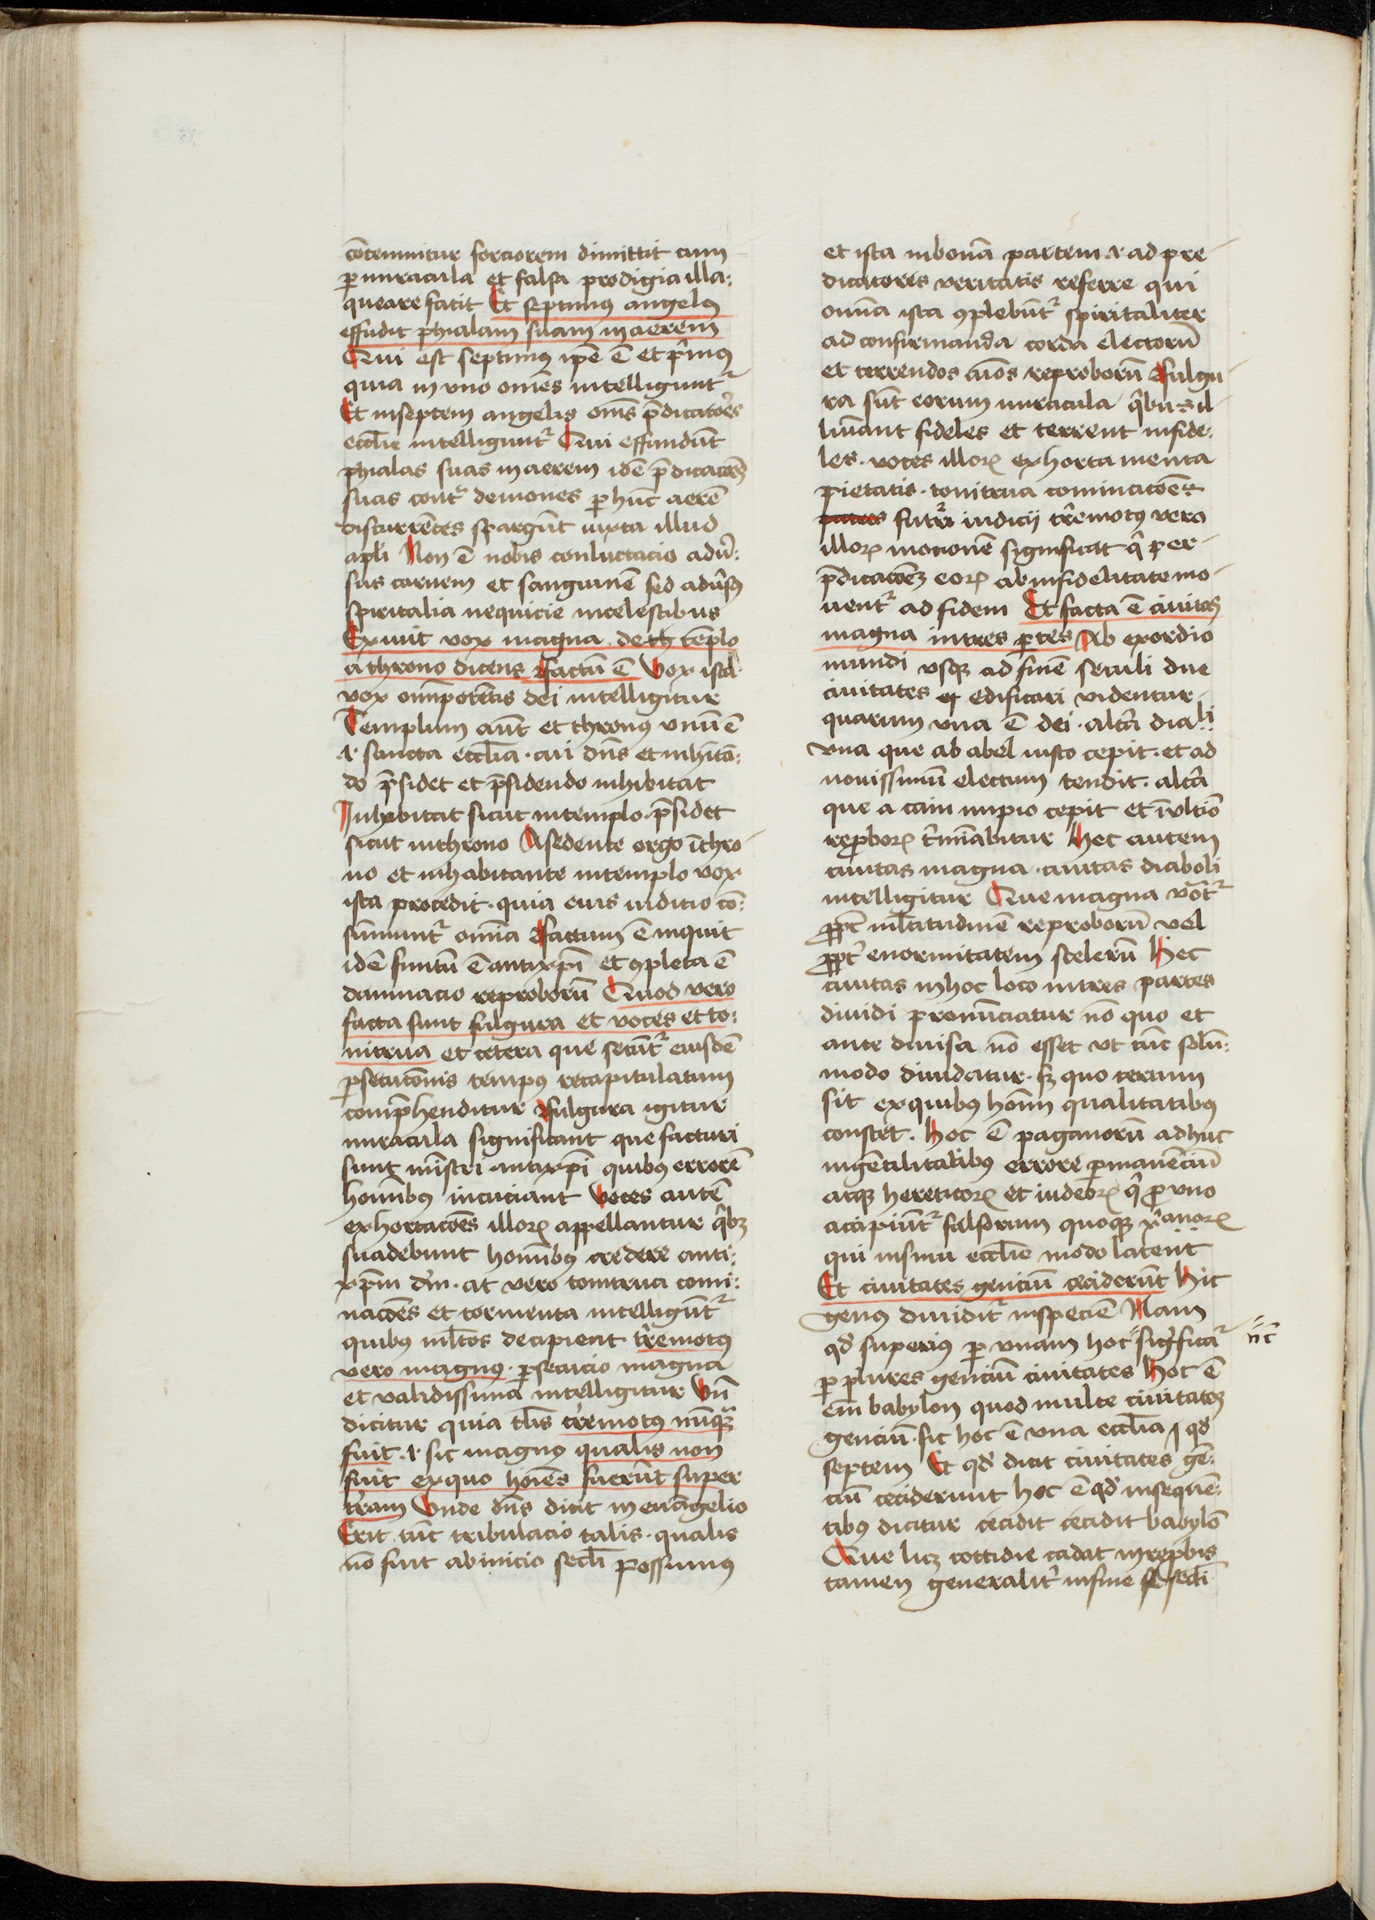 cōtemnitur forciorem dimittit cum
per miracula et falsa prodigia illa-
queare facit Et septimus angelus
effudit phialam suam in aerem
Qui est septimus ip̄e ē et p̄mus
quia in vno om̄es intelligunt᷑
Et in septem angelis om̄s p̄dicatōres
eccl̄ie intelligunt᷑ Qui effundūt
phialas suas in aerem idē p̄dicacōes
suas cont᷑ demones per hūc aerē
discurrētes spargūt iuxta illud
apl̄i Non ē nobis conluctacio adu̓-
sus carnem et sanguinē sed adu̓sus
spiritalia nequicie in celestibus
Exiuit vox magna de templo
a throno dicens factū ē Vox ista
vox om̄ipotētis dei intelligitur
Templum aūt et thronus vnū ē
.i. sancta eccl̄ia . cui dn̄s et inhitā-
do p̄sidet et p̄sidendo inhibitat
Inhabitat sicut in templo . p̄sidet
sicut in throno A sedente ergo ī thro
no et inhabitante in templo vox
ista procedit . quia eius iudicio cō-
sūmunt᷑ om̄ia Factum ē inquit
idē finitū ē antixp̄i et ꝯpleta ē
damnacio reproborū Quod vero
facta sunt fulgura et voces et to-
nitrua et cetera que secūt᷑ eiusdē
persecutōnis tempus recapitulatum
comp̄henditur Fulgura igitur
miracula significant que facturi
sunt mīstri antixp̄i quibus errorē
homībus incuciant Voces autē
exhortacōes illoꝝ appellantur q̄bꝫ
suadebunt homībus credere anti-
xp̄m dm̄ . at vero tonitrua comi-
nacōes et tormenta intelligūt᷑
quibus ml̄tos decipient tr̄emotus
vero magnus . persecucio magna
et validissima intelligitur Vn̄
dicitur quia tl̄is tr̄emotus nūqꝫ
fuit .i. sic magnus qualis non
fuit ex quo hoīes fuerūt super
tr̄am Vnde dn̄s dicit in euāngelio
Erit tūc tribulacio talis . qualis
nō fuit ab inicio secl̄i Possumus
et ista in bonā partem .i. ad pre
dicatores veritatis referre qui
om̄ia ista ꝯplebūt᷑ spiritaliter
ad confirmanda corda electorū
et terrendos aīos reproborū Fulgu
ra sūt eorum miracula q̄bus il
lūīant fideles et terrent infide-
les . voces illoꝝ exhortamenta
pietatis . tonitrua cominacōes
futuri iudicij tr̄emotus vero
illoꝝ mocionē significat q̄ per
p̄dicacōeꝫ eoꝝ ab infidelitate mo
uent᷑ ad fidem Et facta ē ciuitas
magna in tres ꝑtes Ab exordio
mundi vsqꝫ ad finē seculi due
ciuitates edificari videntur
quarum vna ē dei . alt̄a diab̄li
vna que ab abel iusto cepit . et ad
nouissimū electum tendit . alt̄a
que a cain impio cepit et ī vltīo
reproboꝝ t̄miabitur Hec autem
ciuitas magna . ciuitas diaboli
intelligitur Que magna vōt᷑
ꝓpt̄ ml̄titudinē reproborū vel
ꝓpt̄ enormitatem scelerū Hec
ciuitas in hoc loco in tres partes
diuidi pronūciatur nō quo et
ante diuisa nō esset vt tūc solū-
modo diuidatur . sꝫ quo rerum
sit ex quibus hoīm qualitatibus
constet . Hoc ē paganorū adhuc
in gētilitatibus errore permanēciū
atqꝫ hereticoꝝ et iudeoꝝ q̄ pro vno
accipiūt᷑ falsorum quoqꝫ xp̄anoꝝ
qui in sinu eccl̄ie modo latent
Et ciuitates genciū ceciderūt Hic
genus diuidit᷑ in speciē Nam
qd̓ superius per vnam hoc significat᷑ nc̄
per plures genciū ciuitates Hoc ē
em̄ babylon quod multe ciuitates
genciū . sic hoc ē vna eccl̄ia qd̓
septem Et qd̓ dicit ciuitates gē-
ciū ceciderunt hoc ē qd̓ in sequē-
tibus dicitur cecidit cecidit babylō
Que licꝫ cottidie cadat in rep̄bis
tamen generalit̄ in fine secl̄i